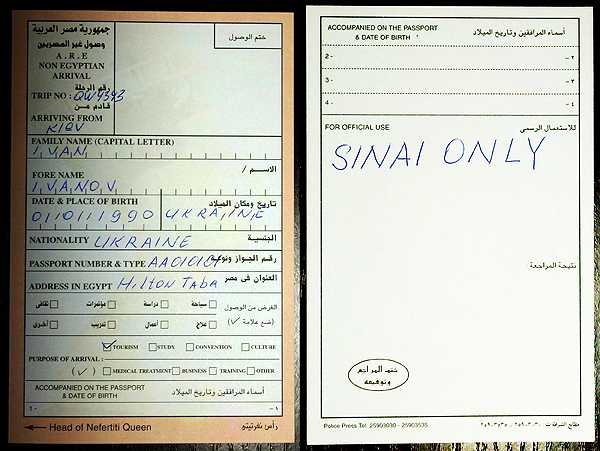 جمهورية مصر العربية
وصول غير المصريين
A . R . E
NON EGYPTIAN
ARRIVAL
ختم الوصول
رقم الرحلة
TRIP NO :
قادم من
ARRIVING FROM
KIEV
FAMILY NAME (CAPITAL LETTER)
IVAN
الاسم /
FORE NAME
IVANOV
DATE & PLACE OF BIRTH تاريخ ومكان الميلاد
01011990 UKRAINE
NATIONALITY UKRAINE الجنسية
PASSPORT NUMBER & TYPE رقم الجواز ونوعه
ADDRESS IN EGYPT Hilton Taba العنوان فى مصر
الغرض من الوصول سياحة دراسة مؤتمرات ثقافى
(ضع علامة ✓) علاج أعمال تدريب أخرى
TOURISM STUDY CONVENTION CULTURE
PURPOSE OF ARRIVAL :
(✓) MEDICAL TREATMENT BUSINESS TRAINING OTHER
ACCOMPANIED ON THE PASSPORT أسماء المرافقين وتاريخ الميلاد
& DATE OF BIRTH
١-
Head of Nefertiti Queen رأس نفرتيتى
ACCOMPANIED ON THE PASSPORT أسماء المرافقين وتاريخ الميلاد
& DATE OF BIRTH
2 - ٢-
3 - ٣-
4 - ٤-
FOR OFFICIAL USE للاستعمال الرسمى
SINAI ONLY
نتيجة المراجعة
ختم المراجع
وتوقيعه
Police Press Tel: 25903030 - 25903535